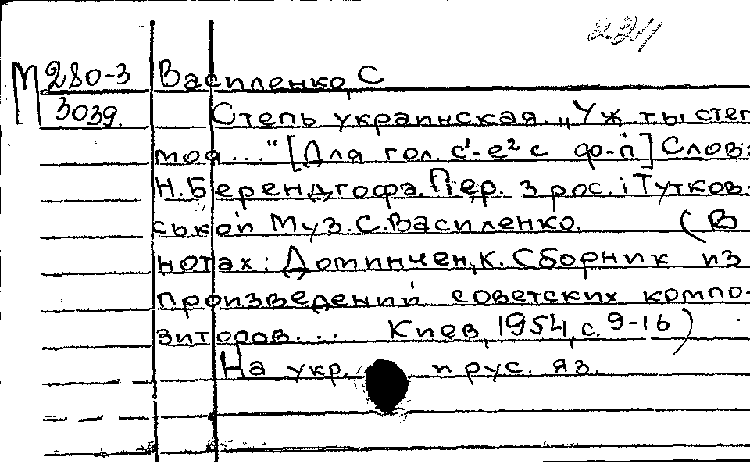 221
М 280-3 Василенко, С
3039. Степь украинская. „Уж ты степ
моя..." [Для гол. c¹-e² с ф-п] Слов
Н. Берендгофа. Пер. з рос. і Тутков-
ськой Муз. С. Василенко. (В
нотах: Доминчен, К. Сборник из
произведений советских компо-
зиторов... Киев, 1954, с. 9-16)
На укр. и рус. яз.